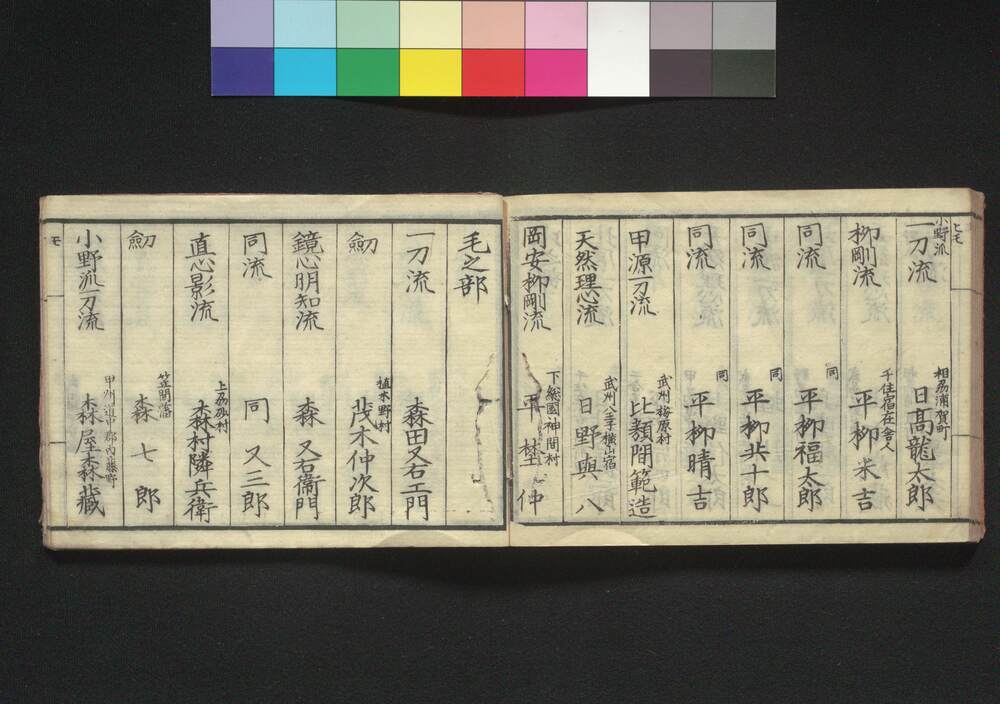 ヒモ
小野派
一刀流
相刕浦賀町
日髙龍太郎
柳剛流
千住宿在舍人
平柳米吉
同流
同
平柳福太郎
同流
平柳共十郎
同流
同
平柳晴吉
甲源一刀流
武州梅原村
比類間範造
天然理心流
武州八王子横山宿
日野與八
岡安柳剛流
下総國神間村
平埜仲
毛之部
一刀流
森田又右エ門
劔
植木野村
茂木仲次郎
鏡心明知流
森又右衞門
同流
同又三郎
直心影流
上刕砂村
森村隣兵衛
劔
笠間藩
森七郎
小野派一刀流
甲州道中郡内藤野
森屋森藏
モ